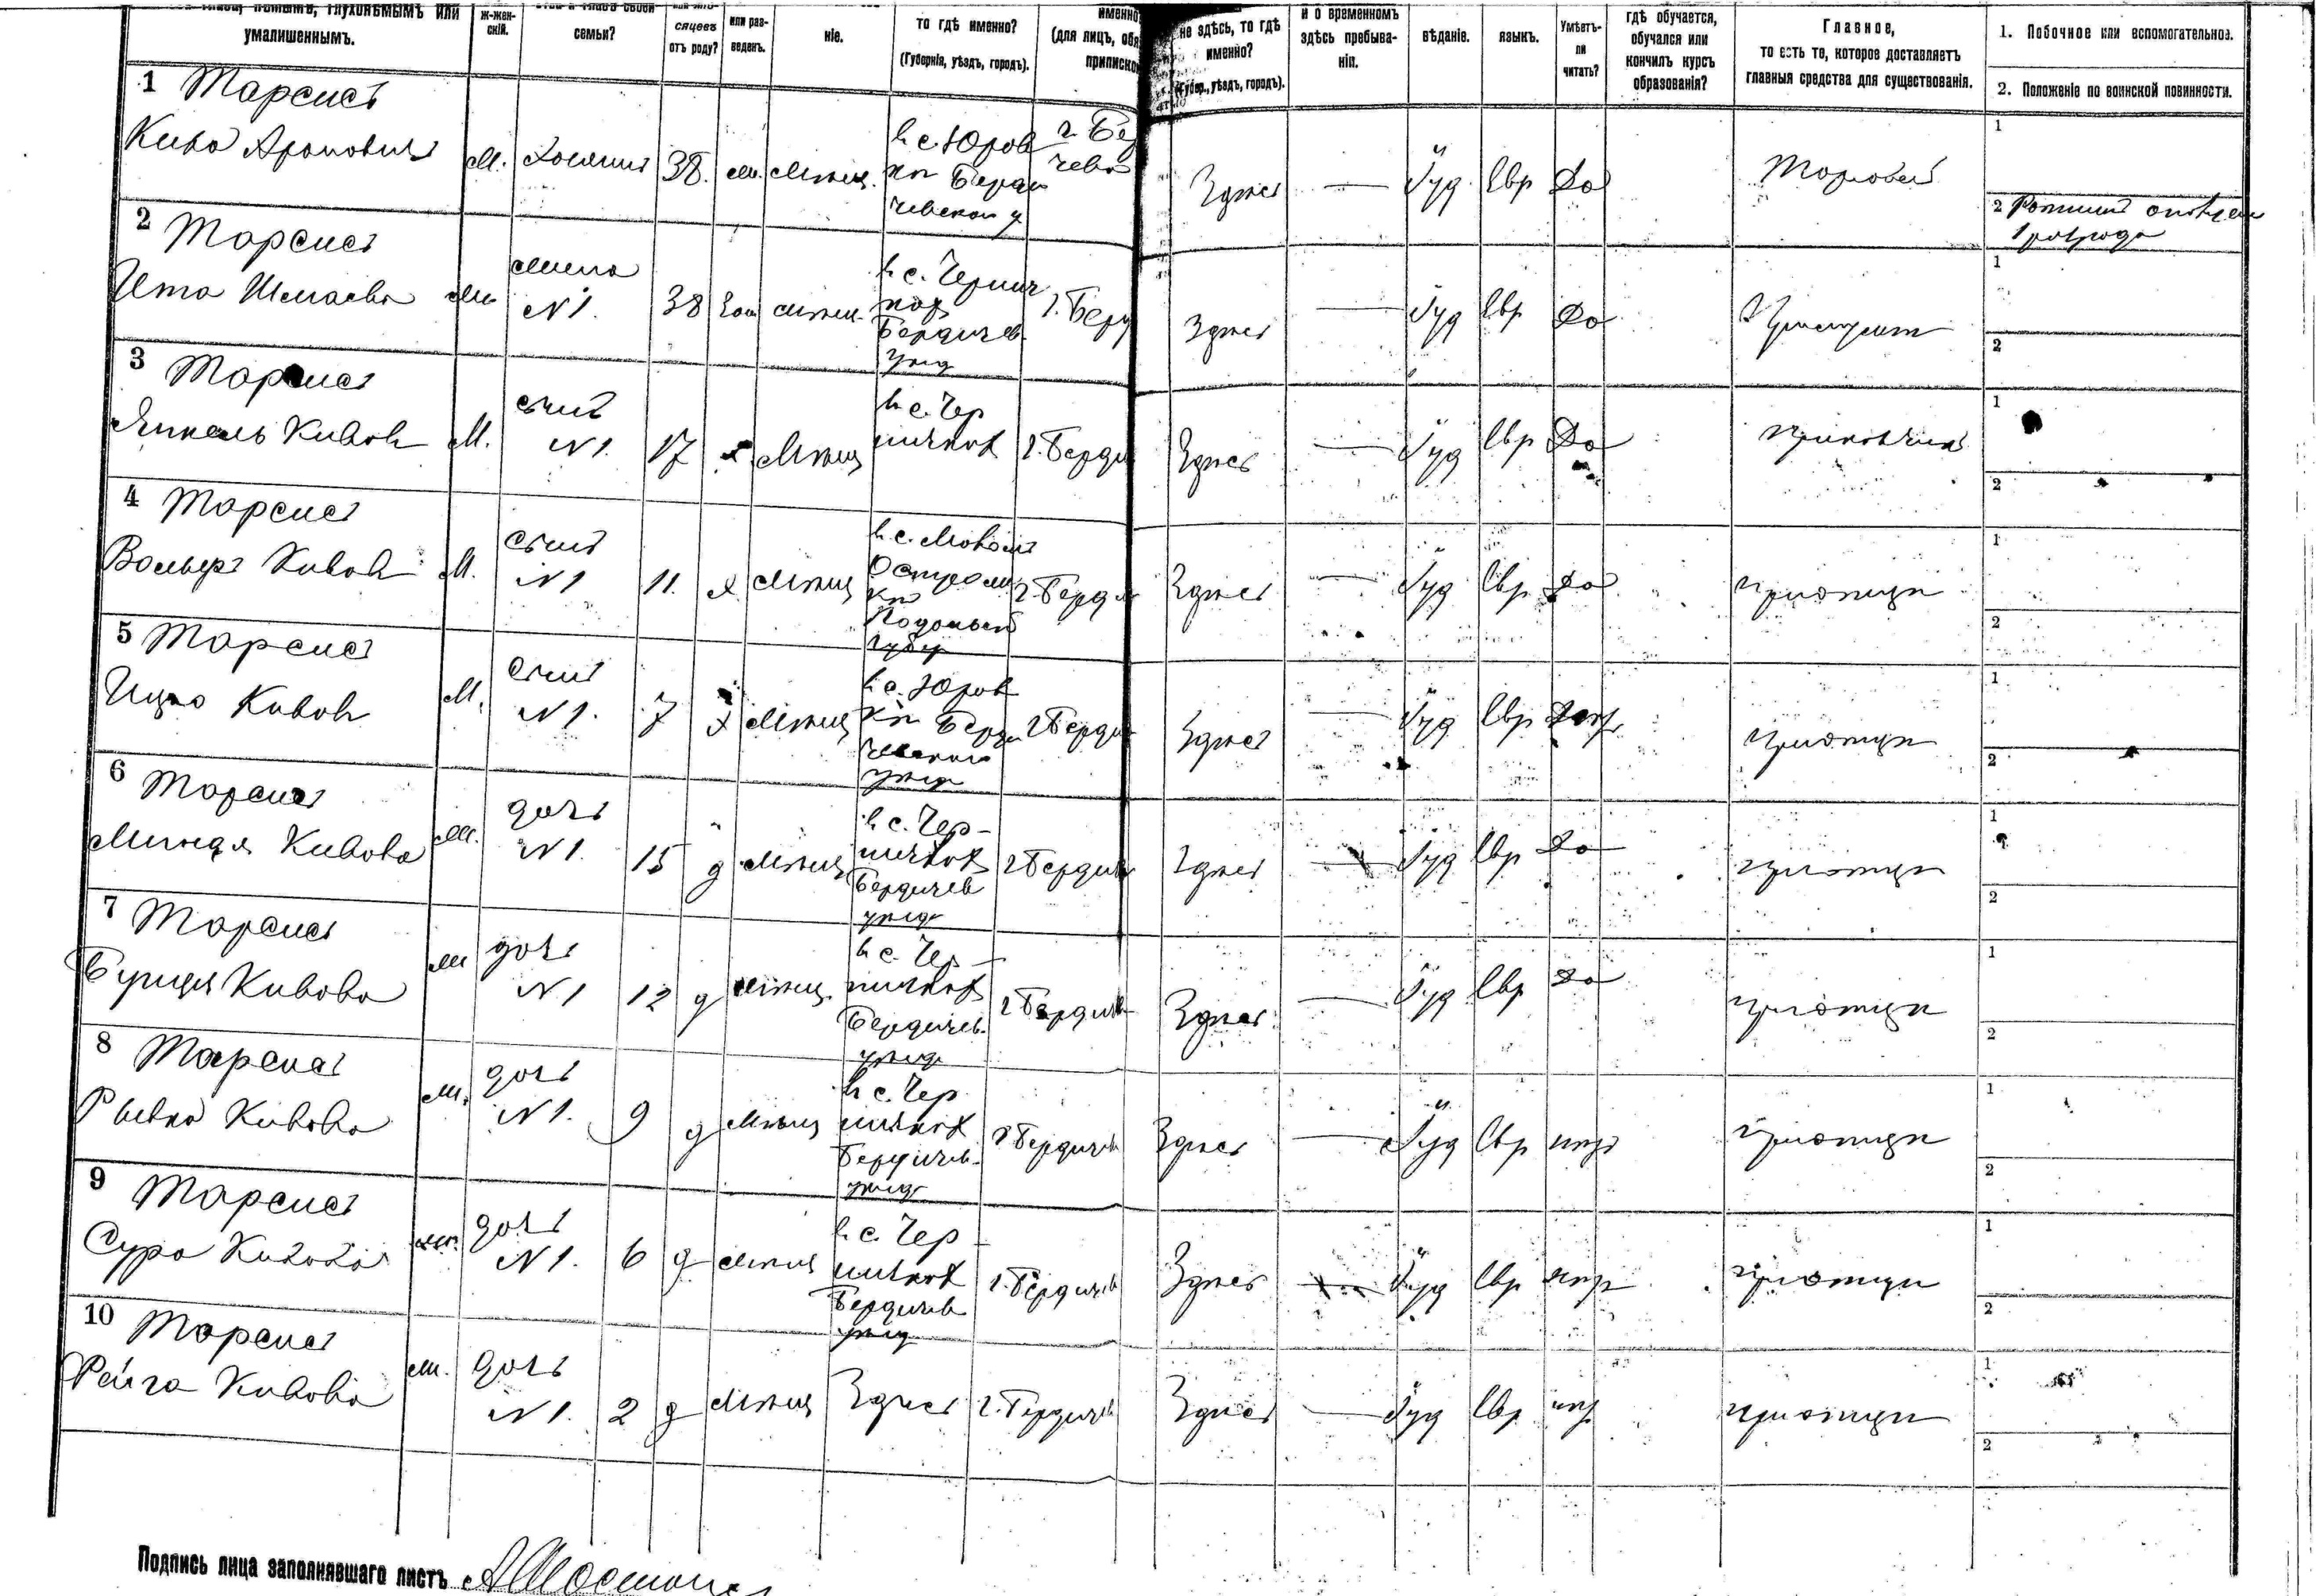 умалишеннымъ.
ж-жен-
скій.
семьи?
сяцевъ
отъ роду?
или раз-
веденъ.
ніе.
то гдѣ именно?
(Губернія, уѣздъ, городъ).
именно
(для лицъ, обя
приписко
не здѣсь, то гдѣ
именно?
(Губер., уѣздъ, городъ).
и о временномъ
здѣсь пребыва-
ніи.
вѣданіе.
языкъ.
Умѣетъ-
ли
читать?
гдѣ обучается,
обучался или
кончилъ курсъ
образованія?
Главное,
то есть то, которое доставляетъ
главныя средства для существованія.
1. Побочное или вспомогательное.
2. Положеніе по воинской повинности.
1 Тарсисъ
Кива Ароновичъ
м. Хозяинъ 38. ж. мѣщ.
в с. Юров
ки Берди
чевскаго у
г. Бер
чевъ
Здѣсь — Іуд Евр Да Торговец
1
2 Ратникъ ополчен
1 разряда
2 Тарсисъ
Ита Шмаева
жена
№ 1. 38 зам мѣщ.
в с. Чернич
ках
Бердичев.
уѣзд
г. Берд
Здѣсь — Іуд Евр Да
1
2
3 Тарсисъ
Янкель Кивов М.
сынъ
№ 1. 17 х. мѣщ
в с. Чер
ничках
г. Берди
Здѣсь — Іуд Евр Да приказчикъ
1
2
4 Тарсисъ
Вольф Кивов М.
сынъ
№ 1 11. х мѣщ
Подольской
губер
г. Берди
Здѣсь — Іуд Евр Да при отцѣ
1
2
5 Тарсисъ
Ицко Кивов М.
сынъ
№ 1. 7 х мѣщ
в с. Юров
ки Берди
чевскаго
уѣзд
г. Берди
Здѣсь — Іуд Евр при отцѣ
1
2
6 Тарсисъ
Миндя Кивова ж.
дочь
№ 1. 15 д мѣщ
в с. Чер-
ничках
Бердичев
уѣзд
г. Бердич
Здѣсь — Іуд Евр Да при отцѣ
1
2
7 Тарсисъ
Бунця Кивова ж
дочь
№ 1 12 д мѣщ.
в с. Чер-
ничках
Бердичев.
уѣзд
г. Бердич
Здѣсь — Іуд Евр Да при отцѣ
1
2
8 Тарсисъ
Рывка Кивова ж.
дочь
№ 1. 9 д мѣщ
в с. Чер
ничках
Бердичев.
уѣзд
г. Бердичев
Здѣсь — Іуд Евр нѣт при отцѣ
1
2
9 Тарсисъ
Сура Кивова ж.
дочь
№ 1. 6 д мѣщ
в с. Чер
ничках
Бердичев
уѣзд
г. Бердичев
Здѣсь — Іуд Евр нѣт при отцѣ
1
2
10 Тарсисъ
Рейза Кивова ж.
дочь
№ 1. 2 д мѣщ Здѣсь г. Бердичев
Здѣсь — Іуд Евр нѣт при отцѣ
1
2
Подпись лица заполнявшаго листъ